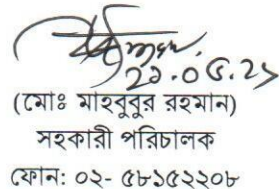 ২১.০৫.২১
(মোঃ মাহবুবুর রহমান)
সহকারী পরিচালক
ফোন: ০২- ৫৮১৫২২০৮